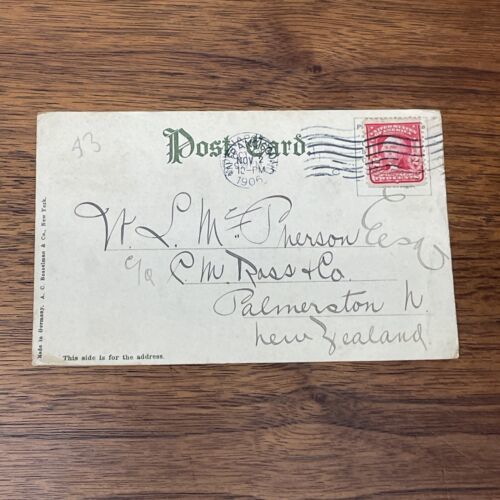 43
Post Card.
NOV 2
12-PM
1906
W. L. McPherson Esq
c/o C. M. Ross & Co.
Palmerston N.
New Zealand.
Made in Germany. A. C. Bosselman & Co., New York.
This side is for the address.